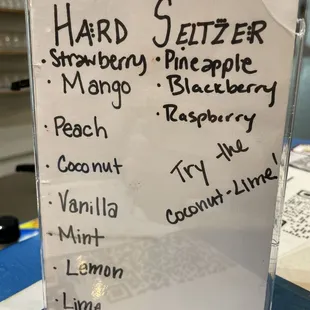 HARD SELTZER
· Strawberry
· Mango
· Peach
· Coconut
· Vanilla
· Mint
· Lemon
· Lime
· Pineapple
· Blackberry
· Raspberry
Try the
Coconut-Lime!